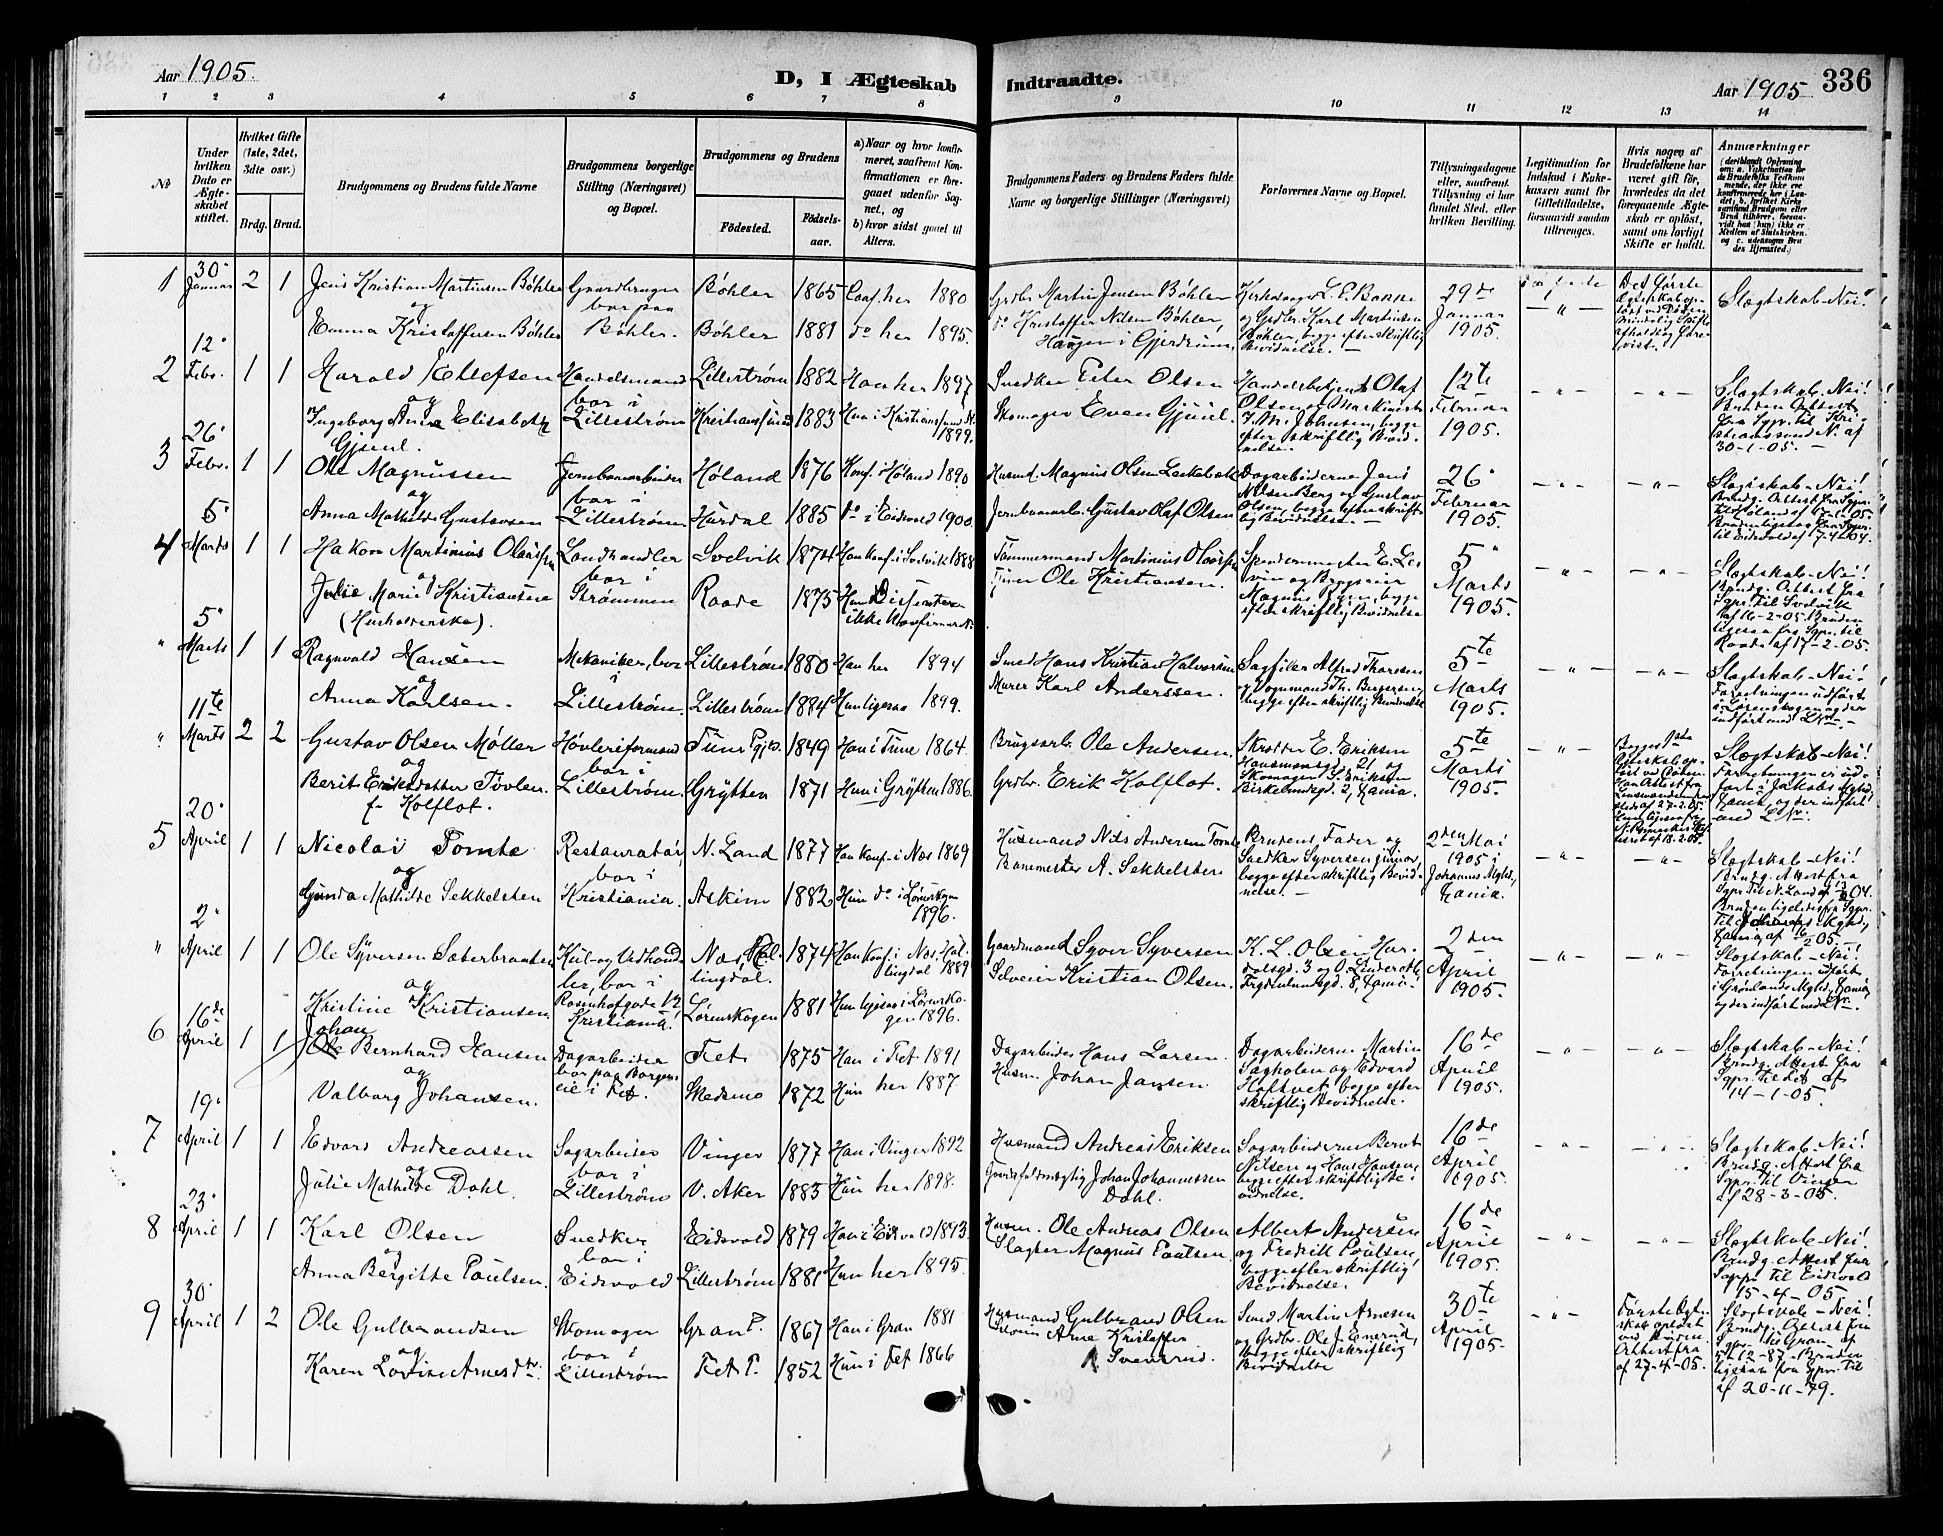 Aar 1905.
D, I Ægteskab
Indtraadte.
Aar 1905
336
1 2 3 4 5 6 7 8 9 10 11 12 13 14
No
Under hvilken Dato er Ægteskabet stiftet.
Hvilket Gifte (1ste, 2det, 3die osv.)
Brdg. Brud.
Brudgommens og Brudens fulde Navne
Brudgommens borgerlige Stilling (Næringsvei) og Bopæl.
Brudgommens og Brudens
Födested.
Födselsaar.
a) Naar og hvor konfirmeret, saafremt Konfirmationen er foregaaet udenfor Sognet, og
b) hvor sidst gaaet til Alters.
Brudgommens Faders og Brudens Faders fulde Navne og borgerlige Stillinger (Næringsvei)
Forlovernes Navne og Bopæl.
Tillysningsdagene eller, saafremt Tillysning ei har fundet Sted, efter hvilken Bevilling.
Legitimation for Indskud i Enkekassen samt for Giftetilladelse, forsaavidt saadan tiltrænges.
Hvis nogen af Brudefolkene har været gift för, hvorledes da det foregaaende Ægteskab er oplöst, samt om lovligt Skifte er holdt.
Anmærkninger
1
30' Januar
2 1
Jens Kristian Martinsen Bøhler
og
Emma Kristoffersen Bøhler
Gaardbruger
bor paa
Bøhler.
Bøhler 1865
Bøhler 1881
Conf. her 1880
do her 1895.
Grdbr. Martin Jensen Bøhler
do Kristoffer Nilsen Bøhler
Haugen i Gjerdrum
Kirkesanger L. E. Bonne
og Grdbr. Karl Martinsen
Bøhler, begge efter skriftlig
Bevidnelse. —
29de
Januar
1905.
Slægtskab—Nei!
2
12' Febr.
1 1
Harald Ellefsen
og
Ingeborg Anna Elisabeth
Gjsul.
Handelsmand
bor i
Lillestrøm
Lillestrøm 1882
Kristianssund 1883
Han her 1897
Hun i Kristianssund N. 1899.
Snedker Peter Olsen
Skomager Even Gjsul.
Handelsbetjent Olaf
Olsen og Maskinist
J. M. Johansen, begge
efter skriftlig Bevidnelse.
12te
Februar
1905.
Slægtskab—Nei!
Bruden Attest
fra Sgpr. til Kristianssund N. af
30-1-05. —
3
26' Febr.
1 1
Ole Magnussen
og
Anna Mathilde Gustavsen
Jernbanearbeider
bor i
Lillestrøm
Høland 1876
Hurdal 1885
Konf. i Høland 1890
do i Eidsvold 1900.
Husmd. Magnus Olsen
Jernbanearb. Gustav Olaf Olsen
Dagarbeiderne Jens
Nilsen Berg og Gustav
Olsen, begge efter skriftlig Bevidnelse. —
26'
Februar
1905.
Slægtskab—Nei!
Brudg. Attest fra Sgpr.
til Høland af
Bruden ligesaa fra Sgpr.
til Eidsvold af 7-4-04.
4
5' Marts
1 1
Hakon Martinius
og
Julie Marie Kristiansen
(Husholderske).
Landhandler
bor i
Strømmen
Svelvik 1874
Raade 1875
Han Konf. i Svelvik 1888
Hun Dissenter
ikke Konfirmeret
Tømmermand Martinius
Ole Kristiansen.
5'
Marts
1905.
Slægtskab—Nei!
Brudg. Attest fra
Sgpr. til Svelvik
af 16-2-05. Bruden
ligesaa fra Sgpr. til
Raade af 17-2-05.
"
5' Marts
1 1
Ragnvald Hansen
og
Anna Karlsen.
Mekaniker, bor
i
Lillestrøm.
Lillestrøm 1880
Lillestrøm 1884
Han her 1894
Hun ligesaa 1899.
Smed Hans Kristian Halvorsen
Murer Karl Anderssen.
Sagfiler Alfred Thoresen
og Vognmand Th. Bergersen
begge efter skriftlig Bevidnelse
5te
Marts
1905.
Slægtskab—Nei!
Forretningen udført
i Lørenskogen og der
indført med
"
11te Marts
2 2
Gustav Olsen Møller
og
Berit Eriksdatter Tøvlen
f. Kolflot.
Høvleriformand
bor i
Lillestrøm.
Tune 1849
Grytten 1871
Han i Tune 1864.
Hun i Grytten 1886.
Brugsarb. Ole Andersen.
Grdbr. Erik Kolflot.
Skrædder E. Eriksen
Hausmannsgd. 21 og
Skomager S. Eriksen
Birkelundsgd. 2, Kania.
5te
Marts
1905.
Slægtskab—Nei!
Forretningen er udført i Jakobs Mghd,
Kania, og der indført
5
20' April
1 1
Nicolai Tomte
og
Gunda Mathilde Sekkelsten
Restauratør,
bor i
Kristiania.
N. Land 1877
Askim 1882
Han Konf. i Næs 1869
Hun do i Lørenskogen 1896.
Husmand Nils Andersen Tomte
Banemester A. Sekkelsten
Brudens Fader og
Snedker Syversen junior,
begge efter skriftlig Bevidnelse. —
2den Mai
1905 i
Johannes Mghd,
Kania.
Slægtskab—Nei!
Brudg. Attest fra
Sgpr. til N. Land
"
2' April
1 1
Ole Syversen Sæterbraaten
og
Kristine Kristiansen
bor i
Rosenhofgade 12
Kristiania.
Næs, Hallingdal. 1874
Lørenskogen 1881
Han Konf. i Næs, Hallingdal 1889
Hun ligesaa i Lørenskogen 1896.
Gaardmand Syver Syversen
Selveier Kristian Olsen.
2den
April
1905.
Slægtskab—Nei!
Forretningen udført
i Grønlands Mghd, Kania,
og der indført med
6
16de April
1 1
Johan
Ole Bernhard Hansen
og
Valborg Johansen.
Dagarbeider
bor paa Borgens
eie i Fet.
Fet 1875
Skedsmo 1872
Han i Fet 1891
Hun her 1887.
Dagarbeider Hans Larsen.
Husm. Johan Jansen.
Dagarbeiderne Martin
Sagholen og Edvard
Holtvet, begge efter
skriftlig Bevidnelse.
16de
April
1905.
Slægtskab—Nei!
Brudg. Attest fra
Sgpr. til Fet af
14-1-05.
7
19' April
1 1
Edvard Andreassen
og
Julie Mathilde Dahl.
Sagarbeider
bor i
Lillestrøm
Vinger 1877
V. Aker 1883
Han i Vinger 1892
Hun her 1898.
Husmand Andreas Eriksen
Johan Johannessen
Dahl.
Sagarbeiderne Bernt
Nilsen og Hans Hansen,
begge efter skriftlig Bevidnelse.
16de
April
1905.
Slægtskab—Nei!
Brudg. Attest fra
Sgpr. til Vinger
af 28-3-05.
8
23' April
1 1
Karl Olsen
og
Anna Bergitte Poulsen.
Snedker
bor i
Eidsvold
Eidsvold 1879
Lillestrøm 1881
Han i Eidsvold 1893.
Hun her 1895.
Husm. Ole Andreas Olsen
Slagter Magnus Poulsen.
Albert Andersen
og Fredrik Poulsen,
begge efter skriftlig
Bevidnelse.
16de
April
1905.
Slægtskab—Nei!
Brudg. Attest fra
Sgpr. til Eidsvold
15-4-05
9
30' April
1 2
Ole Gulbrandsen
og
Karen Lovise Arnesdtr.
Skomager
bor i
Lillestrøm
Gran P. 1867
Fet P. 1852
Han i Gran 1881
Hun i Fet 1866
Husmand Gulbrand Olsen
Arne Kristoffer
Svenerud.
Smed Martin Arnesen
og Grdbr. Ole J. Enerud,
begge efter skriftlig
Bevidnelse
30te
April
1905.
Første Ægteskab opløst
ved Døden.
Attest fra
af 27-4-05.
Slægtskab—Nei!
Brudg. Attest fra
Sgpr. til Gran af
5-12-87. Bruden
ligesaa fra Sgpr. til
af 20-11-79.